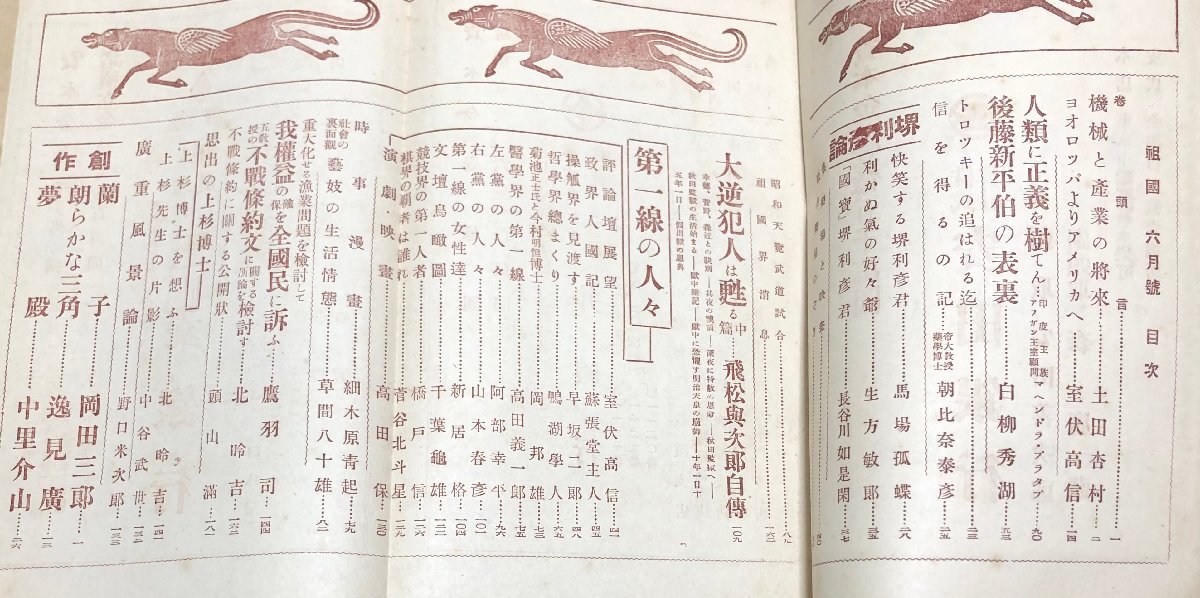 祖國 六月號 目次
卷頭言……一
機械と產業の將來……土田杏村……二
ヨオロッパよりアメリカへ……室伏高信……一四
人類に正義を樹てん…印度王族 アフガン王室顧問 マヘンドラ・プラタプ…九〇
後藤新平伯の表裏……白柳秀湖……五三
トロツキーの追はれる迄……三三
信を得るの記…帝大敎授 藥學博士 朝比奈泰彥……二五
堺利彥論
快笑する堺利彥君……馬場孤蝶……二八
利かぬ氣の好々爺……生方敏郎……三五
「國寶」堺利彥君……長谷川如是閑……四七
昭和天覽武道試合……八九
祖國界消息……一六二
大逆犯人は甦る 中篇……飛松與次郎自傳……一〇九
第一線の人々
評論壇展望……室伏高信……四一
政界人國記……蘇張堂主人……四五
操觚界を見渡す……早坂二郎……四八
哲學界總まくり……鴨湖學人……六五
菊池正士氏と今村明恒博士……岡邦雄……七三
醫學界の第一線……高田義一郎……七五
左黨の人々……阿部幸平……九六
右黨の人々……山本春彥……一〇一
第一線の女性達……新居格……一〇四
文壇鳥瞰圖……千葉龜雄……一三二
競技界の第一人者……橋戶信……一三六
棋界の覇者は誰れ……菅谷北斗星……一三九
演劇・映畫……高田保……一三〇
時事漫畫……細木原青起……七九
社會の裏面觀 藝妓の生活情態……草間八十雄……八二
重大化せる漁業問題を檢討して
我權益の確保を全國民に訴ふ……鷹羽司……一四四
五敎授の不戰條約文に關する所論を檢討す……北昤吉……一六三
不戰條約に關する公開狀……頭山滿……一八
思出の上杉博士
上杉博士を想ふ……北昤吉……一四一
上杉先生の片影……中谷武世……一三一
廣重風景論……野口米次郎……一三三
創作
蘭子……岡田三郎……一
朗らかな三角……逸見廣……一三
夢殿……中里介山……二六